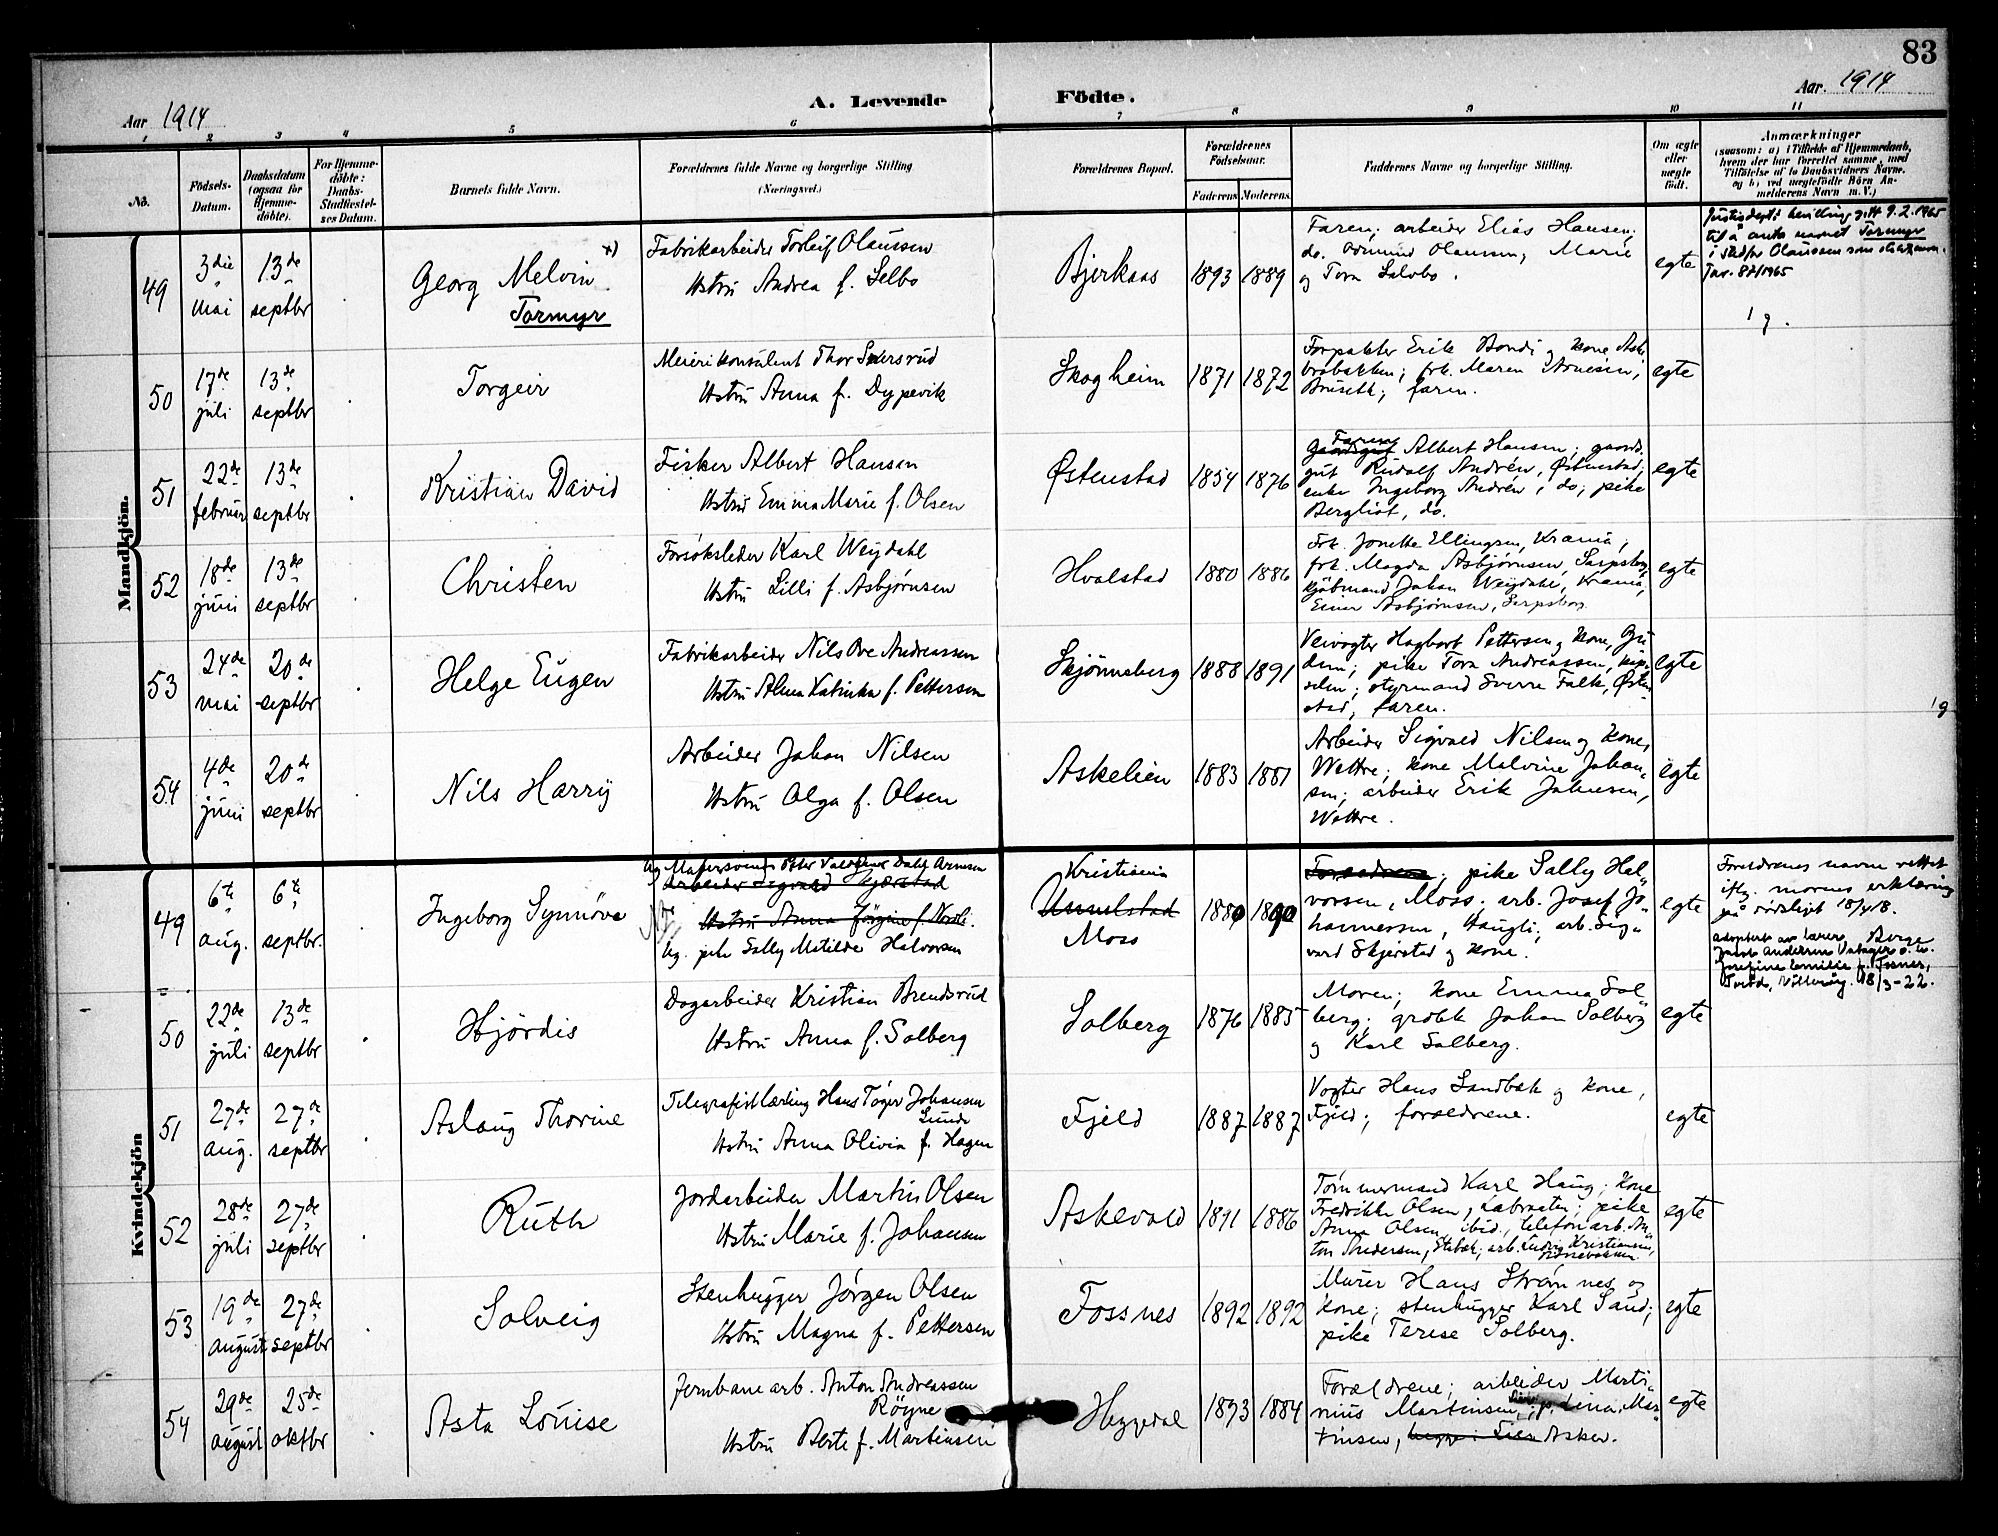 83
Aar 1914
A. Levende Födte.
Aar. 1914
1 2 3 4 5 6 7 8 9 10 11
No.
Födsels-Datum.
Daabsdatum (ogsaa for Hjemme-döbte).
For Hjemme-döbte: Daabs-Stadfæstel-ses Datum.
Barnets fulde Navn.
Forældrenes fulde Navne og borgerlige Stilling
(Næringsvei.)
Forældrenes Bopæl.
Forældrenes Födselsaar.
Faderens Moderens
Faddernes Navne og borgerlige Stilling.
Om ægte eller uægte födt.
Anmærkninger
(saasom: a) i Tilfælde af Hjemmedaab,
hvem der har forrettet samme, med
Tilföielse af to Daabsvidners Navne.
og b) ved uægtefödte Börn An-
melderens Navn m. V.)
Mandkjön.
49
3die mai
13de septbr
Georg Melvin x)
Tormyr
Fabrikarbeider Torleif Olaussen
Hustru Andrea f. Selbo
Bjerkaas
1893 1889
Faren; arbeider Elias Hansen;
do. Odmund Olaussen; Marie
og Tora Salobo.
egte
Justisdepts bevilling gitt 9.2.1965
til å anta navnet Tormyr
i stedfor Olaussen som slektsnavn.
Jnr. 87/1965
1 g.
50
17de juli
13de septbr
Torgeir
Meierikonsulent Thor Sversrud
Hustru Anna f. Dypevik
Skogheim
1871 1872
Forpakter Erik Bondi og kone, Ask-
brobakken; frk. Maren Arnesen,
Bruseth; faren.
egte
51
22de februar
13de septbr
Kristian David
Fisker Albert Hansen
Hustru Emma Marie f. Olsen
Østenstad
1854 1876
Faren
Albert Hansen; gaards-
gut Rudolf Andrén, Østenstad;
enke Ingeborg Andrén, do; pike
Bergliot, do.
egte
52
18de juni
13de septbr
Christen
Forsøksleder Karl Weydahl
Hustru Lilli f. Asbjørnsen
Hvalstad
1880 1886
Frk. Jonette Ellingsen, Krania;
frk. Magda Asbjørnsen, Sarpsborg
kjøbmand Johan Weydahl, Krania,
Einar Asbjørnsen, Sarpsborg
egte
53
24de mai
20de septbr
Helge Eugen
Fabrikarbeider Nils Ove Andreassen
Hustru Alma Katinka f. Pettersen
Skjønneberg
1888 1891
Veivogter Hagbart Pettersen og kone, Gu-
dem; pike Tora Andreassen,
styrmand Sverre Falk, Østen-
stad, faren.
egte
1 g
54
4de juni
20de septbr
Nils Harry
Arbeider Johan Nilsen
Hustru Olga f. Olsen
Askelien
1883 1881
Arbeider Sigvald Nilsen og kone,
Wettre; kone Malvine Johan-
sen; arbeider Erik Johnsen,
Wettre.
egte
Kvindekjön
49
6te aug.
6te septbr.
Ingeborg Synnöve
Ug. Malersvend Peter Valdemar Dahl Arnesen
Arbeider Sigvald Skjærstad
Hustru Anna Jörgine f. Nordli.
Ug. pike Sally Matilde Halvorsen
Kristiania
Unnelstad
Moss
1880 1890
Forældrene; pike Sally Hal-
vorsen, Moss; arb. Josef Jo-
hannessen, Haugli; arb. Sig-
vard Skjerstad og kone.
egte
Foreldrenes navne rettet
iflg. mornes erklæring
på rødslegt 18/4 18.
Adoptert av lærer Børge
Jacob Andersen Vatager o. h.
Josefine Emilie f. Fosnes,
18/3-22.
50
22de juli
13de septbr
Hjördis
Dagarbeider Kristian Brendsrud
Hustru Anna f. Solberg
Solberg
1876 1885
Moren; kone Emma Sol-
berg; grobk Johan Solberg
og Karl Solberg.
egte
51
27de aug.
27de septbr
Aslaug Thorine
Telegrafistlærling Hans Tøger Johansen
Lunde
Hustru Anna Olivia f. Hagen
Fjeld
1887 1887
Vogter Hans Sandbæk og kone,
Fjeld; forældrene.
egte
52
28de juli
27de septbr
Ruth
Jordarbeider Martin Olsen
Hustru Marie f. Johansen
Askevold
1891 1886
Tømmermand Karl Haug; kone
Fredrikke Olsen, Labraaten; pike
Anna Olsen, ibid., telefonarb. An-
ton Andersen, Stabæk; arb. Ludvig Kristiansen,
egte
53
19de august
27de septbr
Solveig
Stenhugger Jørgen Olsen
Hustru Magna f. Pettersen
Fossnes
1892 1892
Murer Hans Strømnes og
kone; stenhugger Karl Sand;
pike Terese Solberg.
egte
54
29de august
25de oktbr
Asta Louise
Jernbanearb. Anton Andreassen
Röyne
Hustru Berte f. Martinsen
Heggedal
1893 1884
Forældrene; arbeider Marti-
nius Martinsen, p. Lina Mar-
tinsen, begge i Lier Asker.
egte